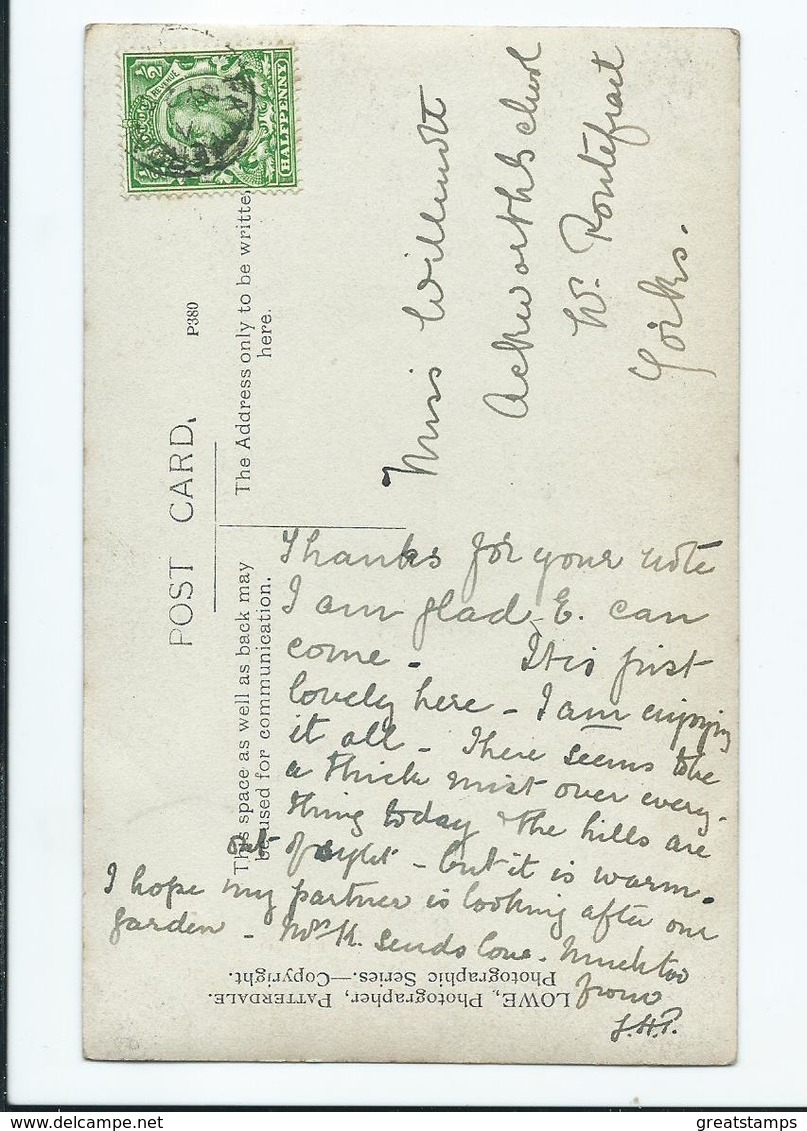 POST CARD.
P380
This space as well as back may
be used for communication.
The Address only to be written
here.
HALFPENNY
REVENUE
1/2
Miss Willmott
Ackworth School
Nr. Pontefract
Yorks.
Thanks for your note
I am glad E. can
come - It is just
lovely here - I am enjoying
it all - There seems to be
a thick mist over every-
thing today & the hills are
out of sight - but it is warm.
I hope my partner is looking after our
garden - Mrs K. sends love. Much too
from
LOWE, Photographer, PATTERDALE.
Photographic Series.—Copyright.
greatstamps